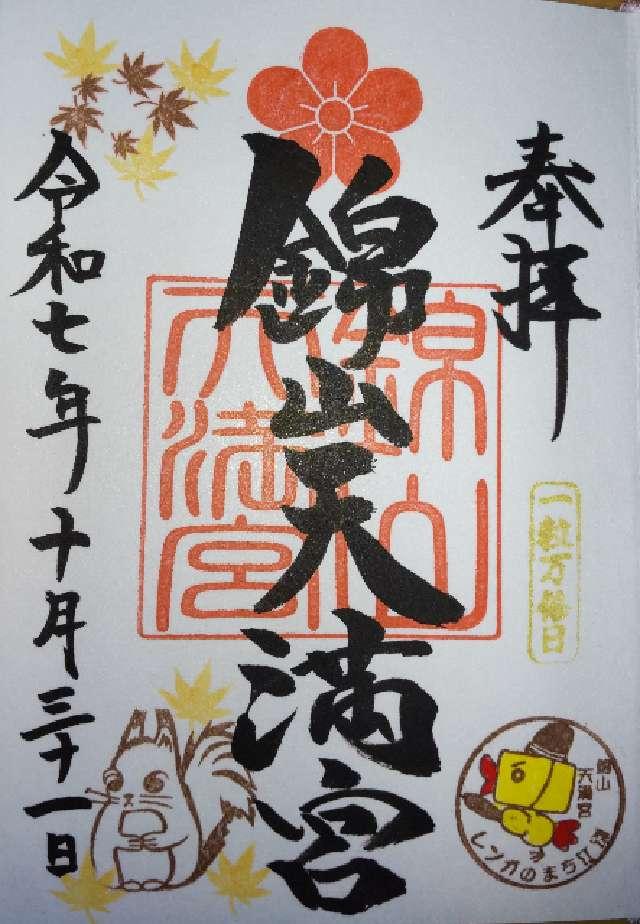 奉拝
一粒万倍日
錦山天満宮
錦山
天満宮
令和七年十月三十一日
錦山
天満宮
レンガのまち江別